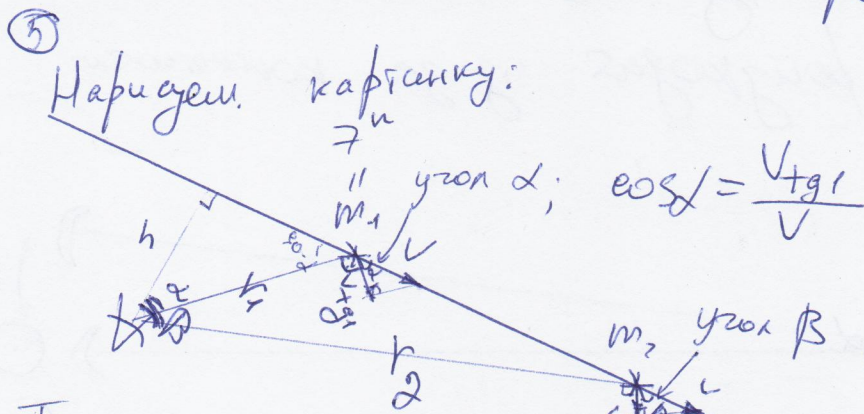 5
Нарисуем картинку:
7ᵐ
"
m₁
угол α; cosα = Vtg1 / V
h
90-α
V
α
r₁
Vtg1
m₂
угол β
r₂
V